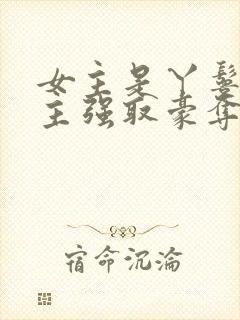 女主是丫鬟
主强取豪夺
宿命沉沦